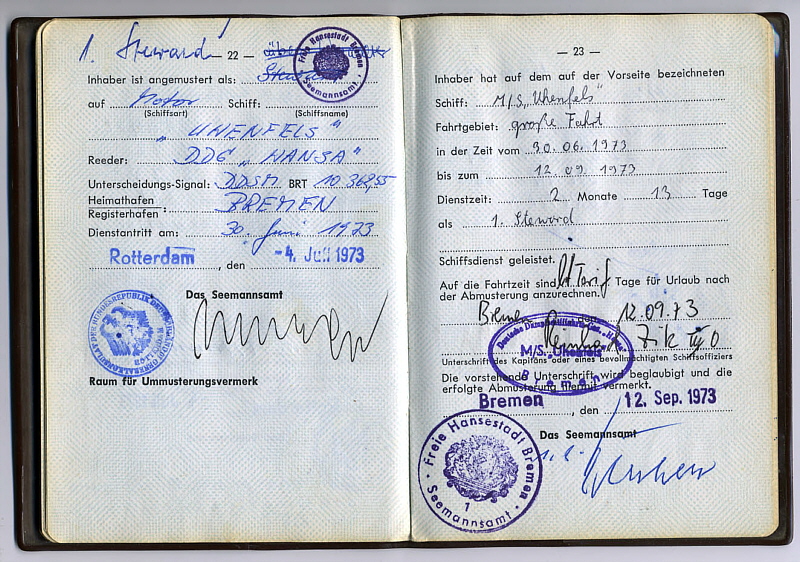 1. Steward
— 22 —
Inhaber ist angemustert als:
Freie Hansestadt Bremen
Seemannsamt
auf Motor Schiff:
(Schiffsart) (Schiffsname)
"UHENFELS"
Reeder: DDG "HANSA"
Unterscheidungs-Signal: DDSM BRT 10 369,55
Heimathafen
Registerhafen: BREMEN
Dienstantritt am: 30. Juni 1973
Rotterdam, den -4. Juli 1973
Das Seemannsamt
Raum für Ummusterungsvermerk
— 23 —
Inhaber hat auf dem auf der Vorseite bezeichneten
Schiff: M/S "Uhenfels"
Fahrtgebiet: große Fahrt
in der Zeit vom 30.06.1973
bis zum 12.09.1973
Dienstzeit: 2 Monate 13 Tage
als 1. Steward
Schiffsdienst geleistet.
Auf die Fahrtzeit sind lt Tarif Tage für Urlaub nach
der Abmusterung anzurechnen.
Bremen 12.09.73
M/S. "Uhenfels"
Bremen
Unterschrift des Kapitäns oder eines bevollmächtigten Schiffsoffiziers
Die vorstehende Unterschrift wird beglaubigt und die
erfolgte Abmusterung hiermit vermerkt.
Bremen, den 12. Sep. 1973
Das Seemannsamt
Freie Hansestadt Bremen
Seemannsamt
1